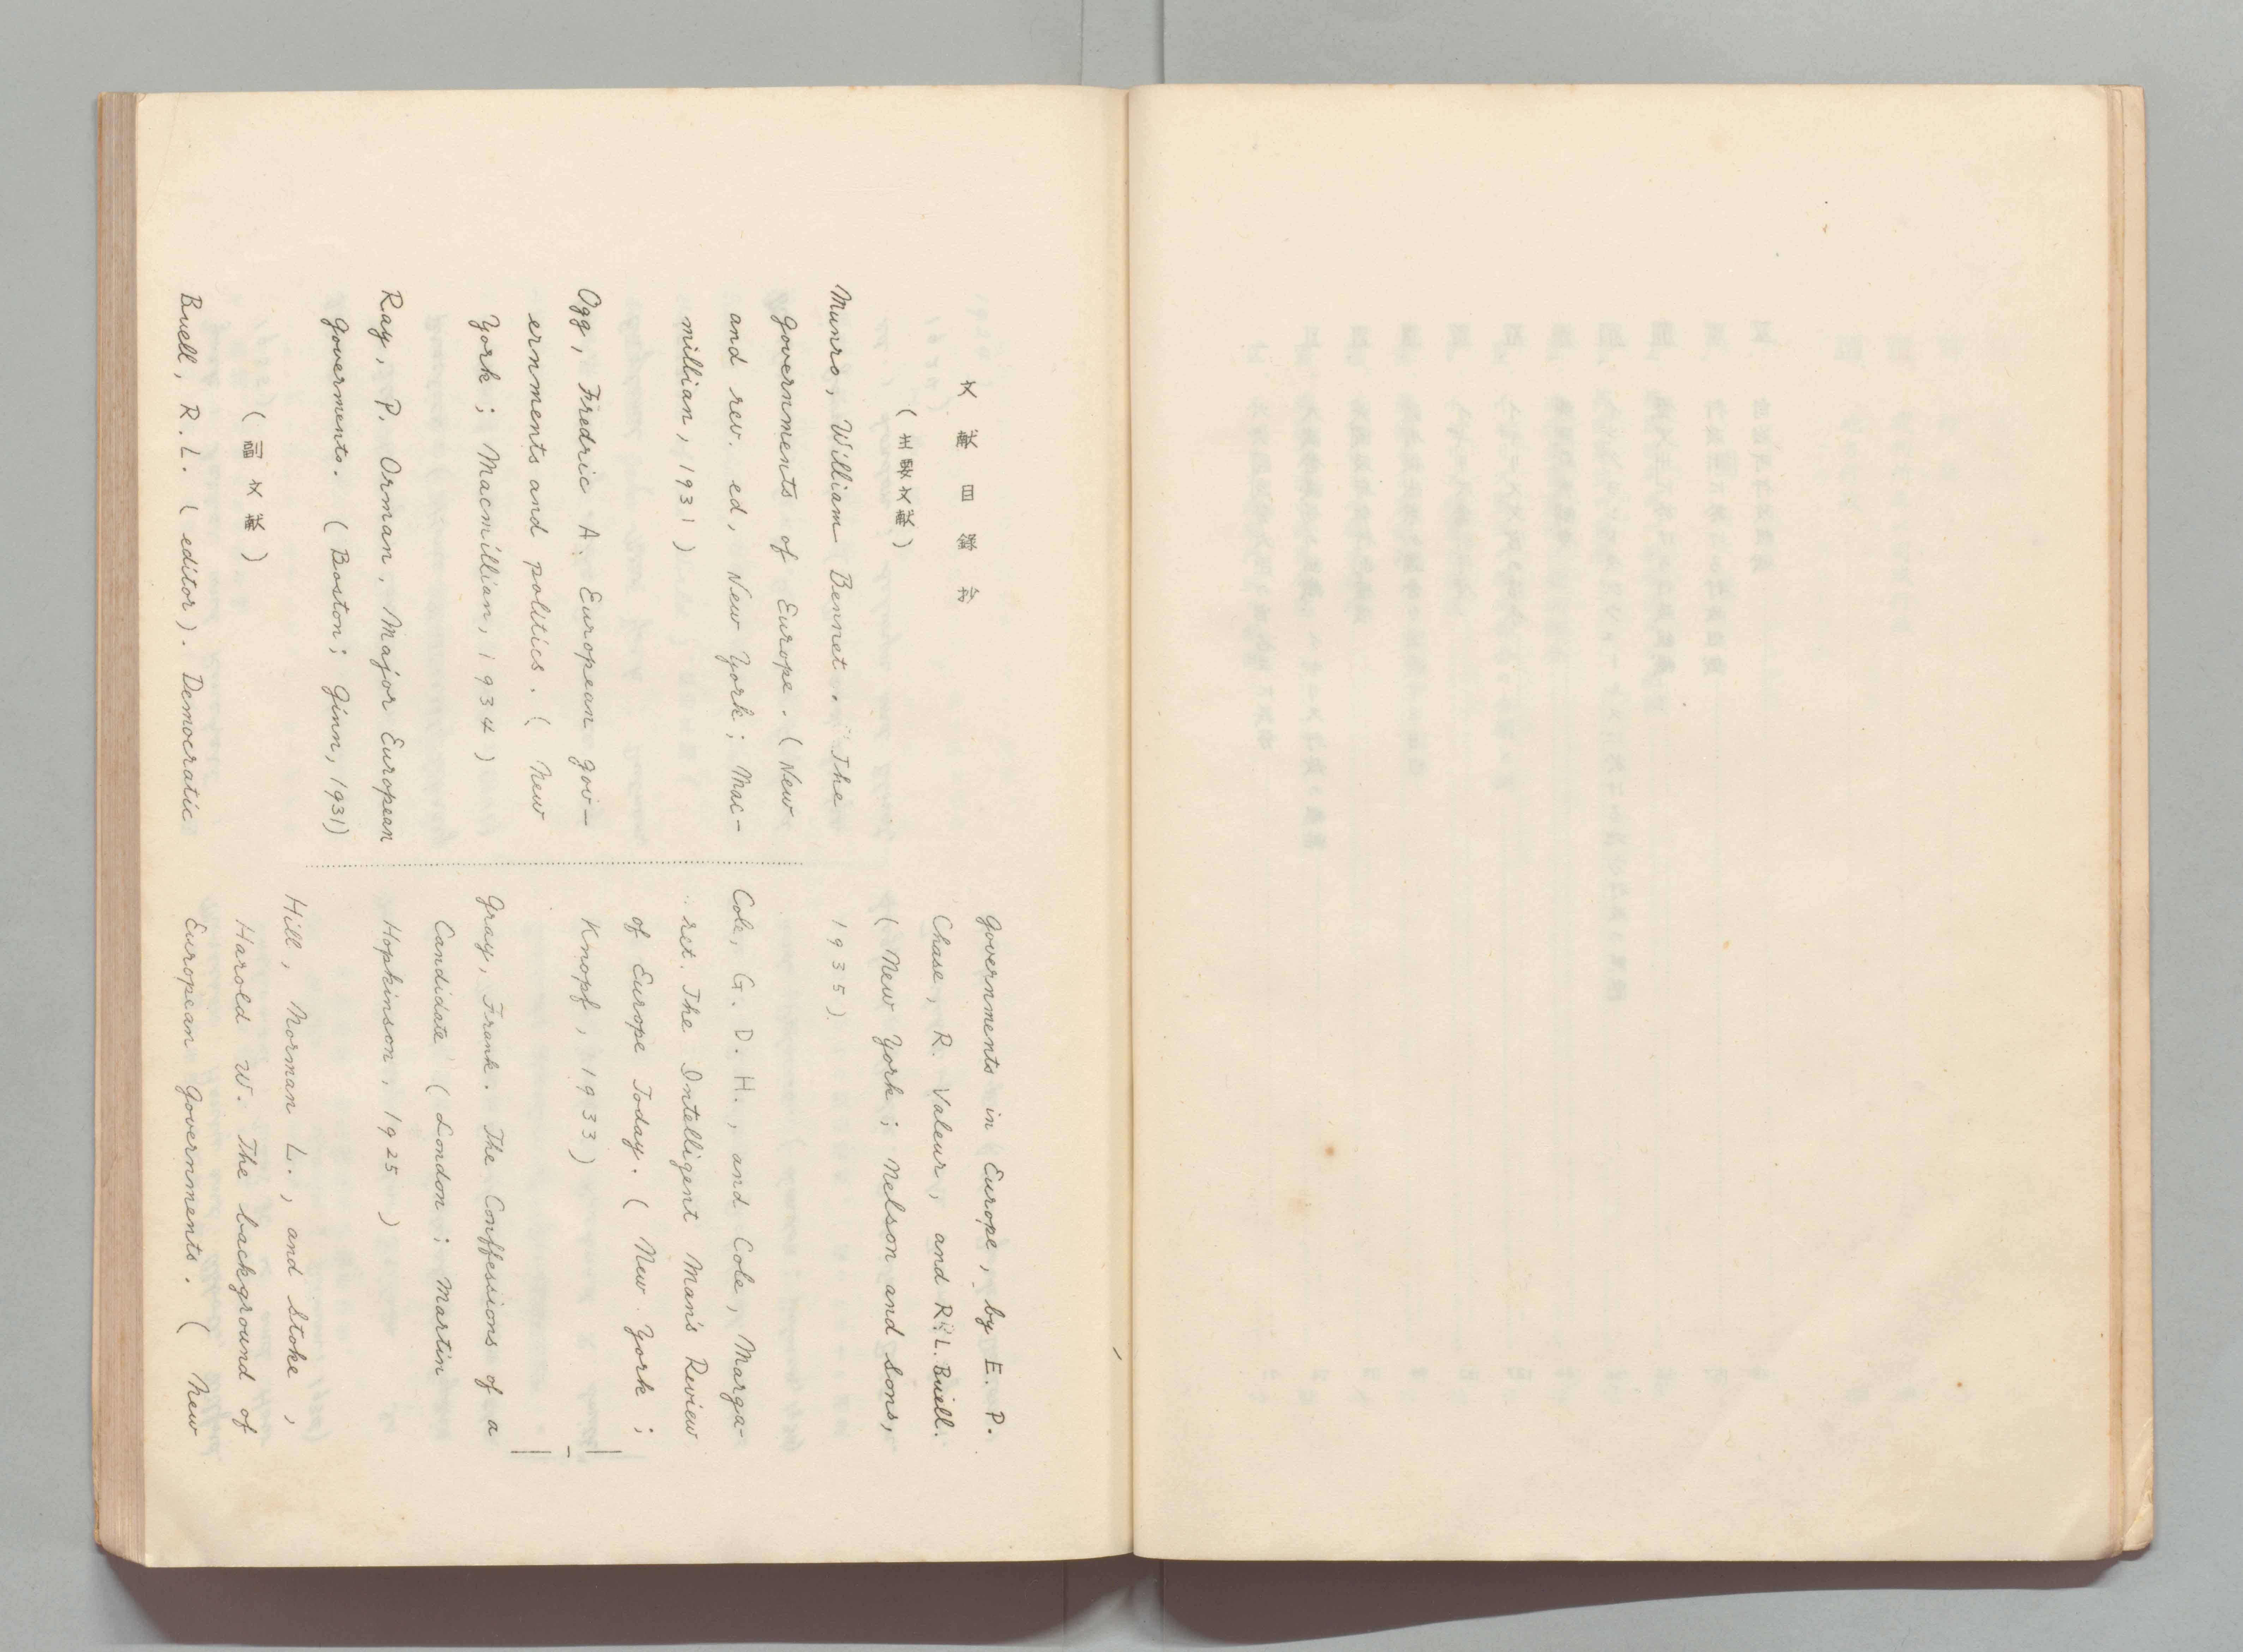 文献目錄抄
(主要文献)
Munro, William Bennet. The
governments of Europe. (New
and rev. ed, New York; Mac-
millian, 1931)
Ogg, Fredric A. European gov-
ernments and politics. (New
York; Macmillian, 1934)
Ray, P. Orman, Major European
governments. (Boston; Ginn, 1931)
(副文献)
Buell, R.L. (editor). Democratic
Governments in Europe, by E. P.
Chase, R. Valeur, and R. L. Buell.
(New York; Nelson and Sons,
1935)
Cole, G. D. H., and Cole, Marga-
ret. The Intelligent Man's Review
of Europe Today. (New York;
Knopf, 1933)
Gray, Frank. The Conffessions of a
Candidate (London; Martin
Hopkinson, 1925)
Hill, Norman L., and Stoke,
Harold W. The background of
European Governments. (New
|-|